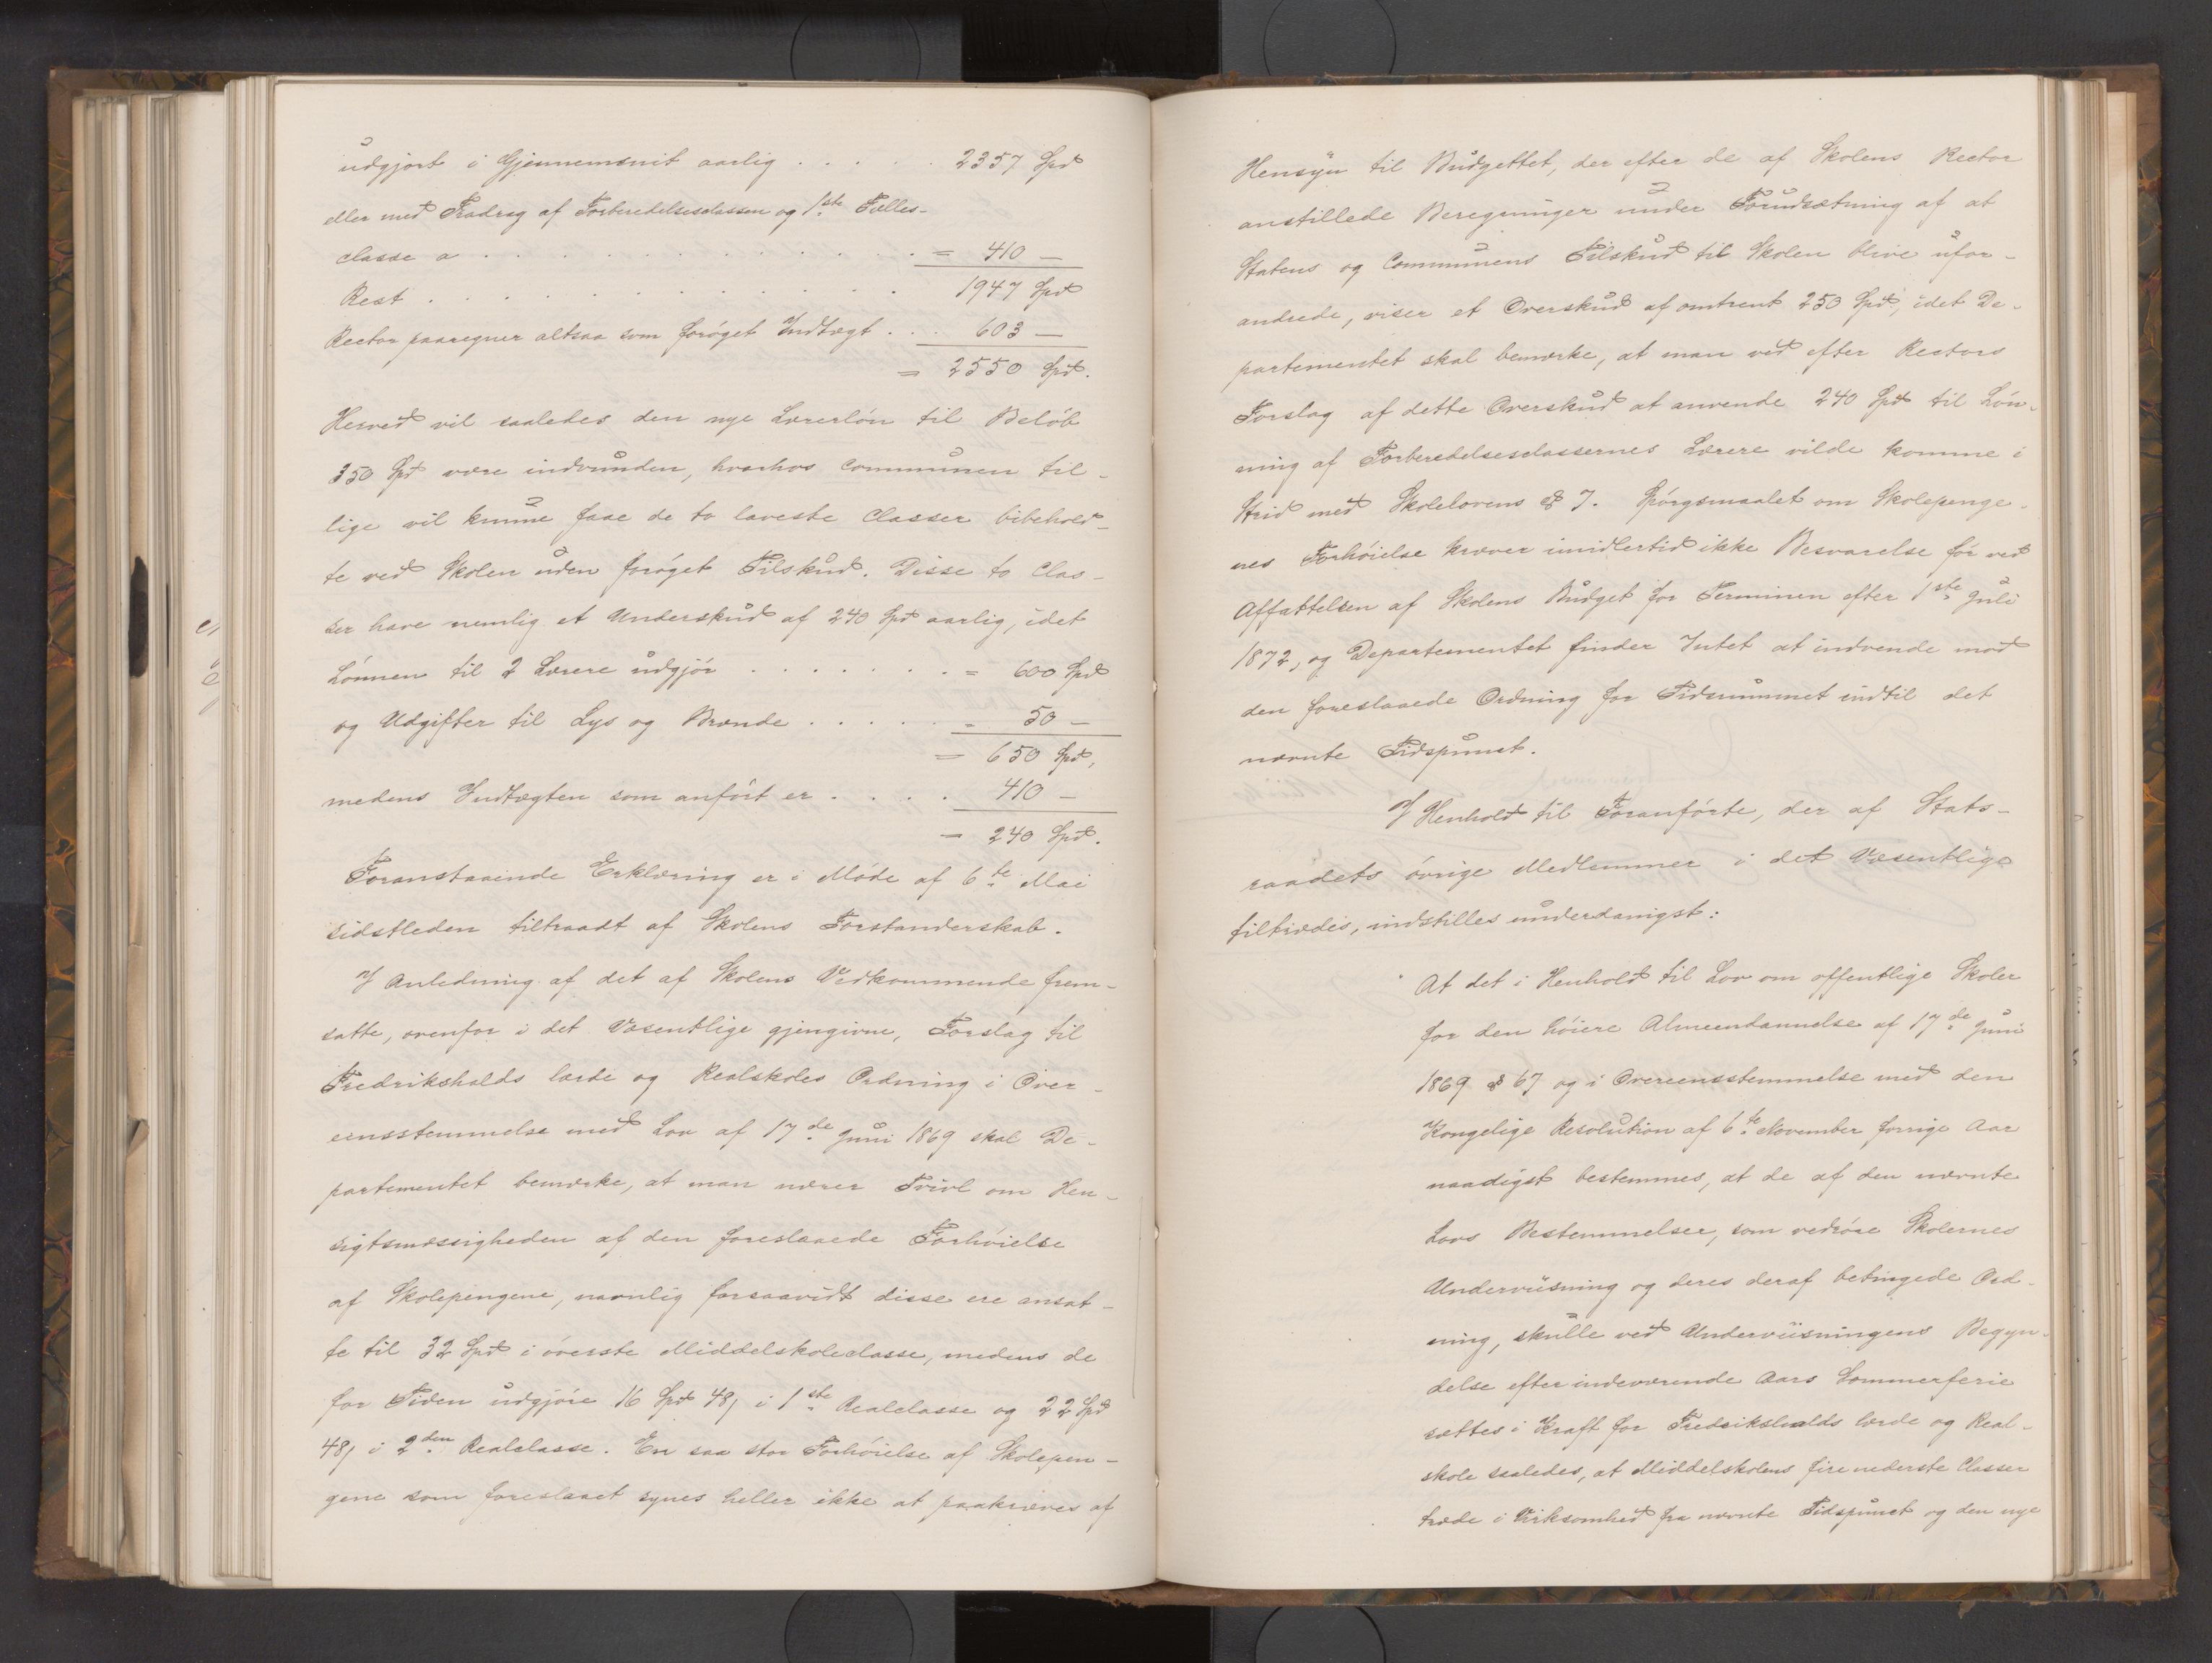 udgjort i Gjennemsnit aarlig . . . . . 2357 Spd
eller med Fradrag af Forberedelsesclassen og 1ste Fælles-
classe a . . . . . . . . . . . . = 410 —
Rest . . . . . . . . . . . . 1947 Spd
Rector paaregner altsaa som forøget Indtægt . . . 603 —
= 2550 Spd.
Herved vil saaledes den nye Lærerløn til Beløb
350 Spd være indvunden, hvorhos Communen til-
lige vil kunne faae de to laveste Classer bibehold-
te ved Skolen uden forøget Tilskud. Disse to Clas-
ser have nemlig et Underskud af 240 Spd aarlig, idet
Lønnen til 2 Lærere udgjør . . . . . . . = 600 Spd
og Udgifter til Lys og Brænde . . . . . = 50 —
= 650 Spd,
medens Indtægten som anført er . . . . 410 —
= 240 Spd.
Foranstaaende Erklæring er i Møde af 6te Mai
sidstleden tiltraadt af Skolens Forstanderskab.
I Anledning af det af Skolens Vedkommende frem-
satte, ovenfor i det Væsentlige gjengivne, Forslag til
Fredrikshalds lærde og Realskoles Ordning i Over-
eensstemmelse med Lov af 17de Juni 1869 skal De-
partementet bemærke, at man nærer Tvivl om Hen-
sigtsmæssigheden af den foreslaaede Forhøielse
af Skolepengene, navnlig forsaavidt disse ere ansat-
te til 32 Spd i øverste Middelskoleclasse, medens de
for Tiden udgjøre 16 Spd 48 i 1ste Realclasse og 22 Spd
48 i 2den Realclasse. En saa stor Forhøielse af Skolepen-
gene som foreslaaet synes heller ikke at paakræves af
Hensyn til Budgettet, der efter de af Skolens Rector
anstillede Beregninger under Forudsætning af at
Statens og Communens Tilskud til Skolen blive ufor-
andrede, viser et Overskud af omtrent 250 Spd, idet De-
partementet skal bemærke, at man ved efter Rectors
Forslag af dette Overskud at anvende 240 Spd til Løn-
ning af Forberedelsesclassernes Lærere vilde komme i
Strid med Skolelovens § 7. Spørgsmaalet om Skolepenge-
nes Forhøielse kræver imidlertid ikke Besvarelse før ved
Affattelsen af Skolens Budget for Terminen efter 1ste Juli
1872, og Departementet finder Intet at indvende mod
den foreslaaede Ordning for Tidsrummet indtil det
nævnte Tidspunct.
I Henhold til Foranførte, der af Stats-
raadets øvrige Medlemmer i det Væsentlige
tiltrædes, indstilles underdanigst:
At det i Henhold til Lov om offentlige Skoler
for den høiere Almeendannelse af 17de Juni
1869 § 67 og i Overeensstemmelse med den
Kongelige Resolution af 6te November forrige Aar
naadigst bestemmes, at de af den nævnte
Lovs Bestemmelser, som vedrøre Skolernes
Underviisning og deres deraf betingede Ord-
ning, skulle ved Underviisningens Begyn-
delse efter indeværende Aars Sommerferie
sættes i Kraft for Fredrikshalds lærde og Real-
skole saaledes, at Middelskolens fire nederste Classer
træde i Virksomhed fra nævnte Tidspunct og den nye